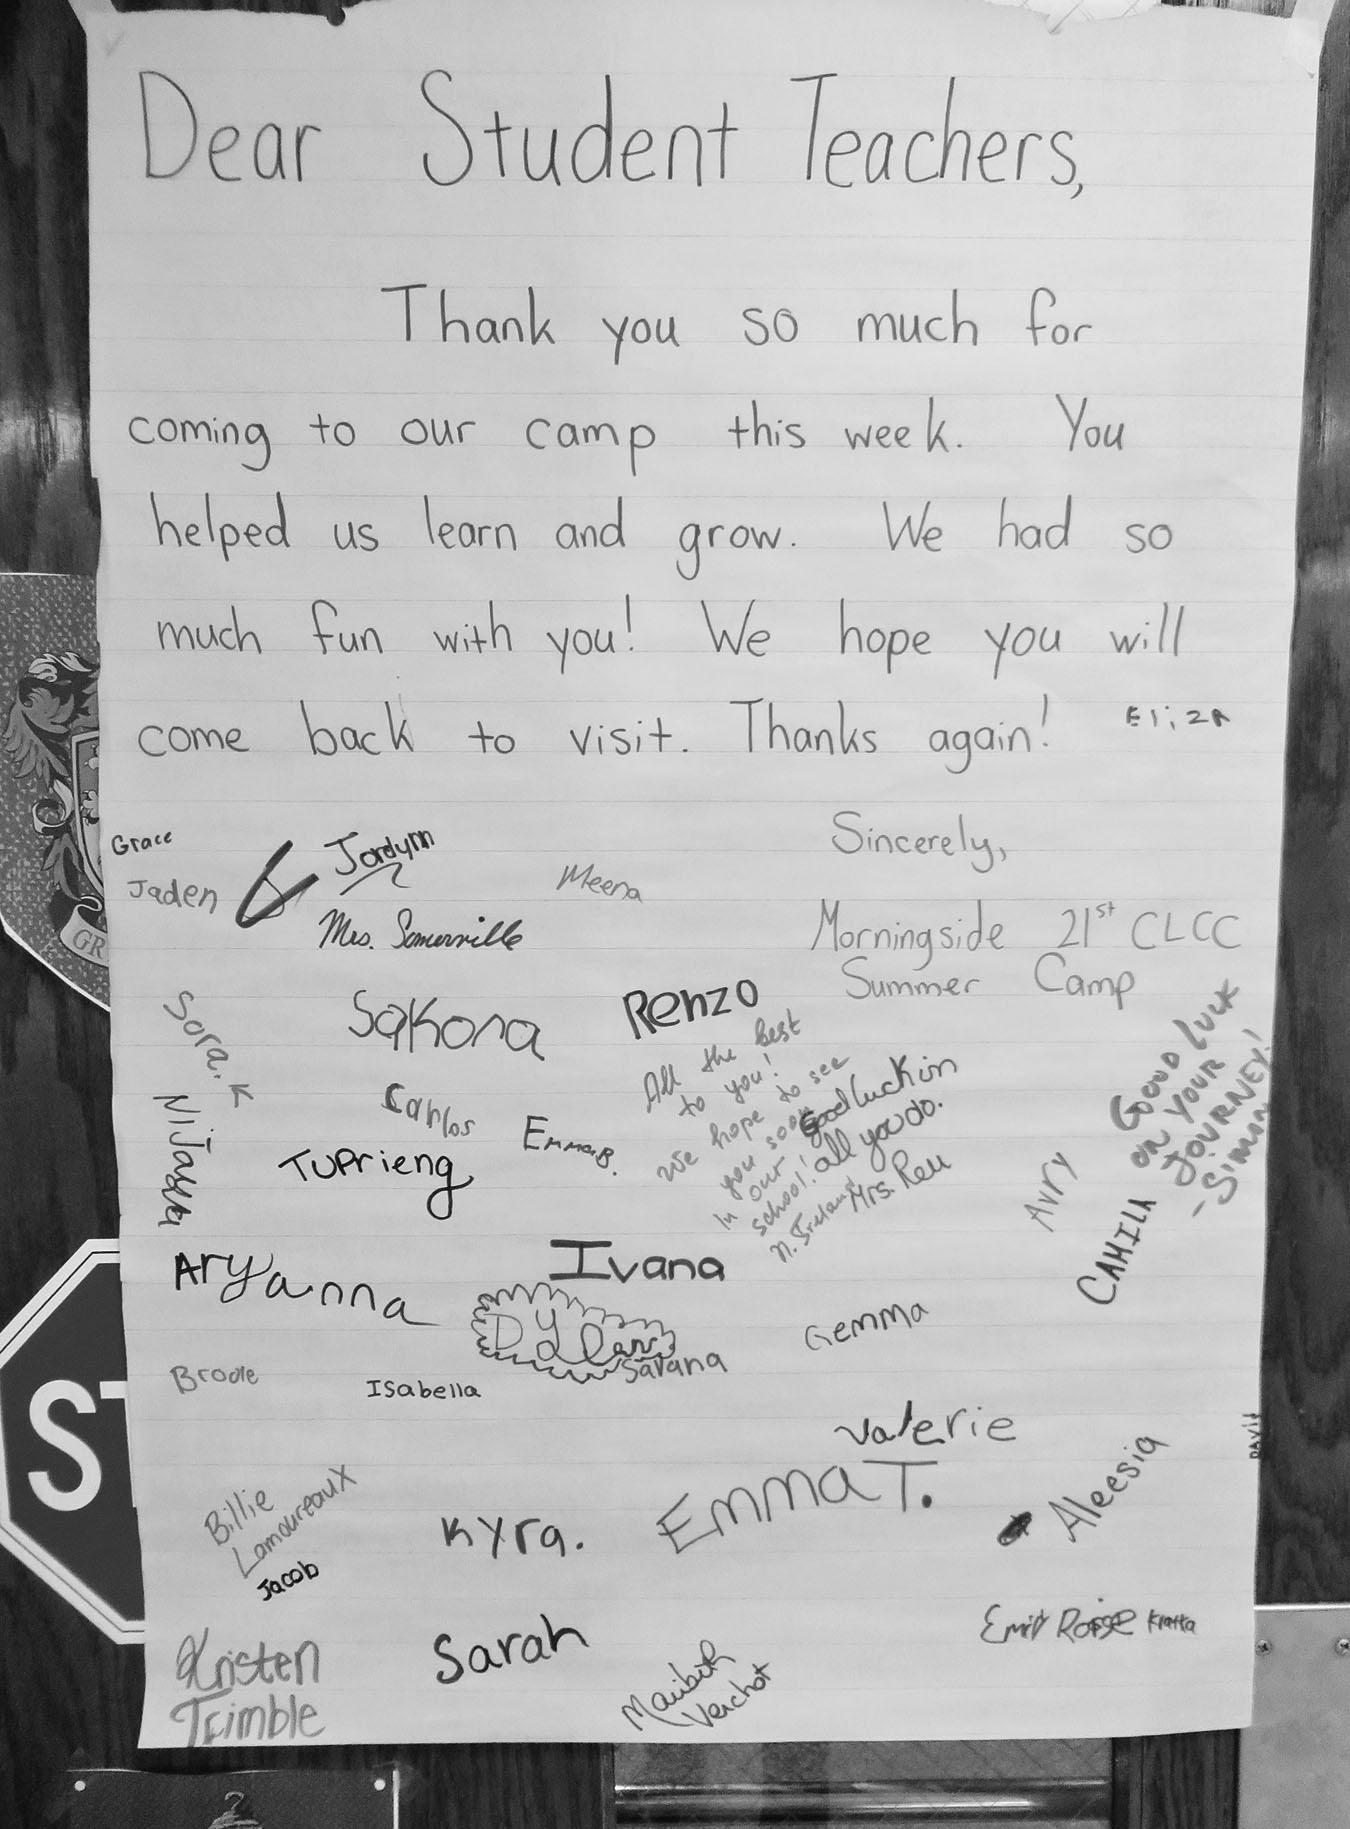 Dear Student Teachers,
Thank you so much for
coming to our camp this week. You
helped us learn and grow. We had so
much fun with you! We hope you will
come back to visit. Thanks again!
Sincerely,
Morningside 21st CLCC
Summer Camp
Grace
Jaden
Jordynn
Meena
Mrs. Somerville
Sora.K
Sakona
Renzo
All the best
to you!
We hope to see
you soon
in our
school!
N. Ireland
Good luck in
all you do.
GOOD LUCK
ON YOUR
JOURNEY!
Carlos
EmmaB.
TuPrieng
Avry
CAMILA
Aryanna
Ivana
Dylan
Savana
Gemma
Isabella
Valerie
DAVid
Billie
Lamoureaux
Jacob
Kyra.
Emma T.
Aleesia
Kristen
Trimble
Sarah
GR
ST